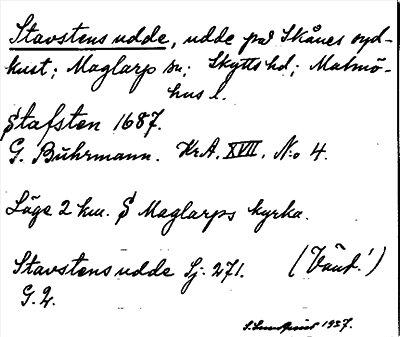 Stavstens udde, udde på Skånes syd-
kust; Maglarp sn; Skytts hd; Malmö-
hus l.
Stafsten 1687.
G. Buhrmann. Kr.A. XVII. N:o 4.
Läge 2 km. S Maglarps kyrka.
Stavstens udde Sj. 271. (Vänd!)
G. 2.
S. Lundquist 1937.